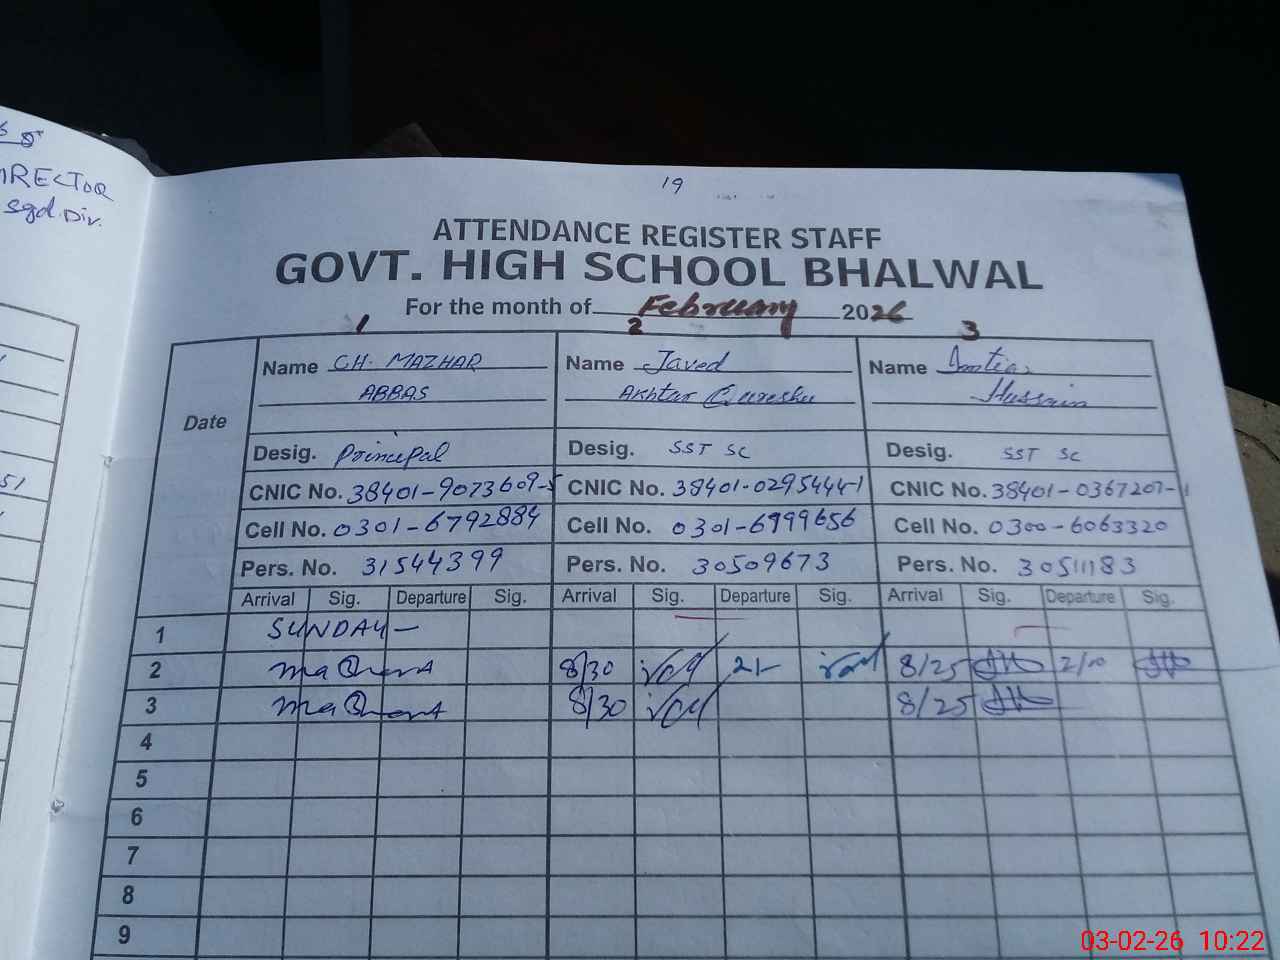 DIRECTOR
Sgd. Div.
51
19
ATTENDANCE REGISTER STAFF
GOVT. HIGH SCHOOL BHALWAL
For the month of February 2026
1 2 3
Name CH. MAZHAR Name Javed Name Imtiaz
ABBAS Akhtar Qureshi Hussain
Date
Desig. Principal Desig. SST SC Desig. SST SC
CNIC No. 38401-9073609-5 CNIC No. 38401-0295444-1 CNIC No. 38401-0367207-1
Cell No. 0301-6792884 Cell No. 0301-6999656 Cell No. 0300-6063320
Pers. No. 31544399 Pers. No. 30509673 Pers. No. 30511183
Arrival Sig. Departure Sig. Arrival Sig. Departure Sig. Arrival Sig. Departure Sig.
1 SUNDAY
2 8/30 2/- 8/25 2/10
3 8/30 8/25
4
5
6
7
8
9
03-02-26 10:22